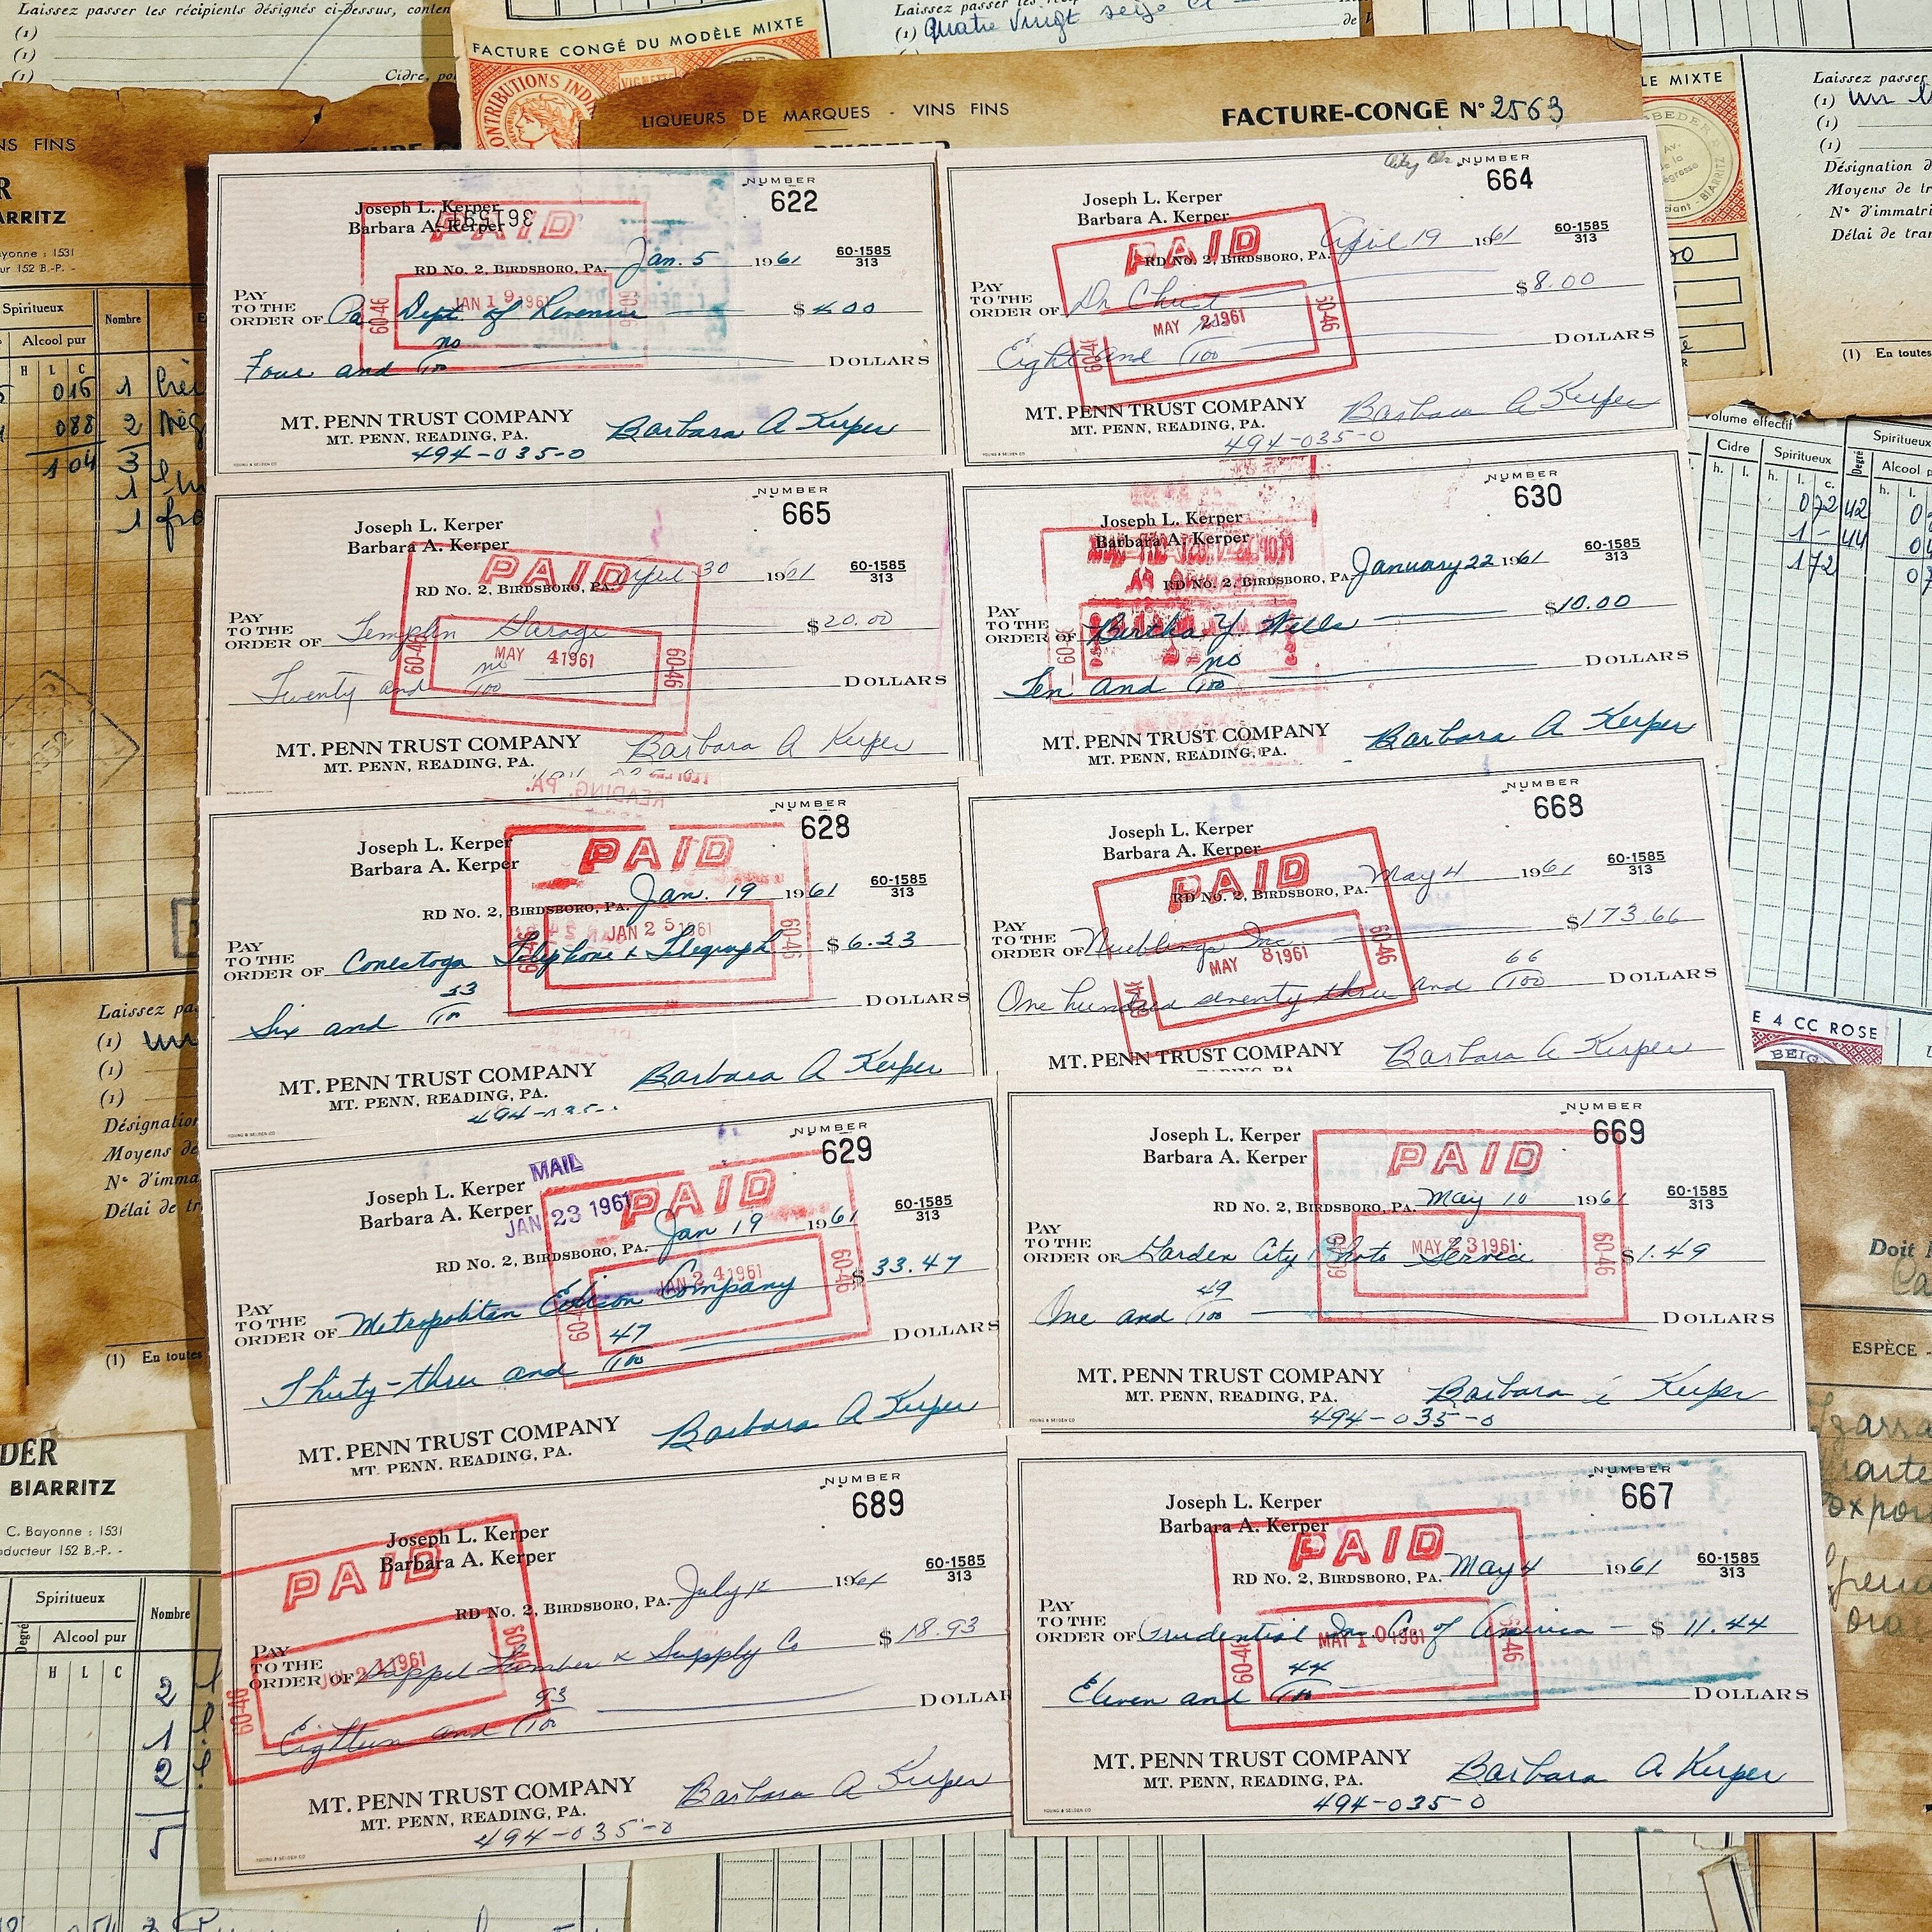 Laissez passer les récipients désignés ci-dessus, conten
(1)
(1)
(1)
Cidre, po
FACTURE CONGÉ DU MODÈLE MIXTE
CONTRIBUTIONS INDI
VIGNETTE
(1) Quatre Vingt seize
LIQUEURS DE MARQUES - VINS FINS
FACTURE-CONGÉ N° 2563
LE MIXTE
Laissez passer
(1) un
(1)
(1)
Désignation d
Moyens de tr
N° d'immatri
Délai de tran
(1) En toutes
NS FINS
R
ARRITZ
ayonne : 1531
ur 152 B.-P. -
Spiritueux
Nombre
Alcool pur
H L C
015 1
088 2
104 3
1
1
NUMBER
622
Joseph L. Kerper
Barbara A. Kerper
3615917
PAID
RD No. 2, BIRDSBORO, PA. Jan. 5 1961
60-1585
313
JAN 19 1961
60-46
PAY
TO THE
ORDER OF Pa Dept. of Revenue $ 4.00
Four and no/100 DOLLARS
MT. PENN TRUST COMPANY
MT. PENN, READING, PA.
Barbara A Kerper
494-035-0
YOUNG & SELDEN CO
NUMBER
664
Joseph L. Kerper
Barbara A. Kerper
PAID
RD No. 2, BIRDSBORO, PA. April 19 1961
60-1585
313
PAY
TO THE
ORDER OF Dr Christ $ 8.00
MAY 2 1961
60-46
Eight and no/100 DOLLARS
MT. PENN TRUST COMPANY
MT. PENN, READING, PA.
Barbara A Kerper
494-035-0
YOUNG & SELDEN CO
NUMBER
665
Joseph L. Kerper
Barbara A. Kerper
PAID
RD No. 2, BIRDSBORO, PA. April 30 1961
60-1585
313
PAY
TO THE
ORDER OF Templin Garage $ 20.00
MAY 4 1961
60-46
60-46
Twenty and no/100 DOLLARS
MT. PENN TRUST COMPANY
MT. PENN, READING, PA.
Barbara A Kerper
NUMBER
630
Joseph L. Kerper
Barbara A. Kerper
RD No. 2, BIRDSBORO, PA. January 22 1961
60-1585
313
PAY
TO THE
ORDER OF Bertha Y. Wells $ 10.00
60-09
Ten and no/100 DOLLARS
MT. PENN TRUST COMPANY
MT. PENN, READING, PA.
Barbara A Kerper
READING, PA.
NUMBER
628
Joseph L. Kerper
Barbara A. Kerper
PAID
RD No. 2, BIRDSBORO, PA. Jan. 19 1961
60-1585
313
JAN 25 1961
60-46
PAY
TO THE
ORDER OF Conestoga Telephone & Telegraph $ 6.33
Six and 33/100 DOLLARS
MT. PENN TRUST COMPANY
MT. PENN, READING, PA.
Barbara A Kerper
494-035-
YOUNG & SELDEN CO
NUMBER
668
Joseph L. Kerper
Barbara A. Kerper
PAID
RD No. 2, BIRDSBORO, PA. May 4 1961
60-1585
313
PAY
TO THE
ORDER OF Nueblings Inc. $ 173.66
MAY 8 1961
60-46
One hundred seventy three and 66/100 DOLLARS
MT. PENN TRUST COMPANY
Barbara A Kerper
NUMBER
629
MAIL
JAN 23 1961
Joseph L. Kerper
Barbara A. Kerper
PAID
RD No. 2, BIRDSBORO, PA. Jan 19 1961
60-1585
313
JAN 24 1961
60-46
60-09
PAY
TO THE
ORDER OF Metropolitan Edison Company $ 33.47
Thirty-three and 47/100 DOLLARS
MT. PENN TRUST COMPANY
MT. PENN, READING, PA.
Barbara A Kerper
NUMBER
669
Joseph L. Kerper
Barbara A. Kerper
PAID
RD No. 2, BIRDSBORO, PA. May 10 1961
60-1585
313
PAY
TO THE
ORDER OF Garden City Photo Service $ 1.49
MAY 23 1961
60-46
One and 49/100 DOLLARS
MT. PENN TRUST COMPANY
MT. PENN, READING, PA.
Barbara A Kerper
494-035-0
YOUNG & SELDEN CO
NUMBER
689
Joseph L. Kerper
Barbara A. Kerper
PAID
RD No. 2, BIRDSBORO, PA. July 12 1961
60-1585
313
PAY
TO THE
ORDER OF Lumber & Supply Co $ 18.93
JUL 21 1961
60-46
Eighteen and 93/100 DOLLAR
MT. PENN TRUST COMPANY
MT. PENN, READING, PA.
Barbara A Kerper
494-035-0
YOUNG & SELDEN CO
NUMBER
667
Joseph L. Kerper
Barbara A. Kerper
PAID
RD No. 2, BIRDSBORO, PA. May 4 1961
60-1585
313
PAY
TO THE
ORDER OF Prudential Ins. Co of America $ 11.44
MAY 10 1961
60-46
Eleven and 44/100 DOLLARS
MT. PENN TRUST COMPANY
MT. PENN, READING, PA.
Barbara A Kerper
494-035-0
YOUNG & SELDEN CO
Volume effectif
Cidre
Spiritueux
Degré
Spiritueux
Alcool p
h. l. h. l. c. h. l.
072 42
1 - 44
172
E 4 CC ROSE
BEIG
Doit
ESPÈCE -
Laissez pas
(1) un
(1)
(1)
Désignation
Moyens de
N° d'imma
Délai de tr
(1) En toutes
DER
BIARRITZ
C. Bayonne : 1531
oducteur 152 B.-P. -
Spiritueux
Degré
Alcool pur
Nombre
H L C
2
1
2
5